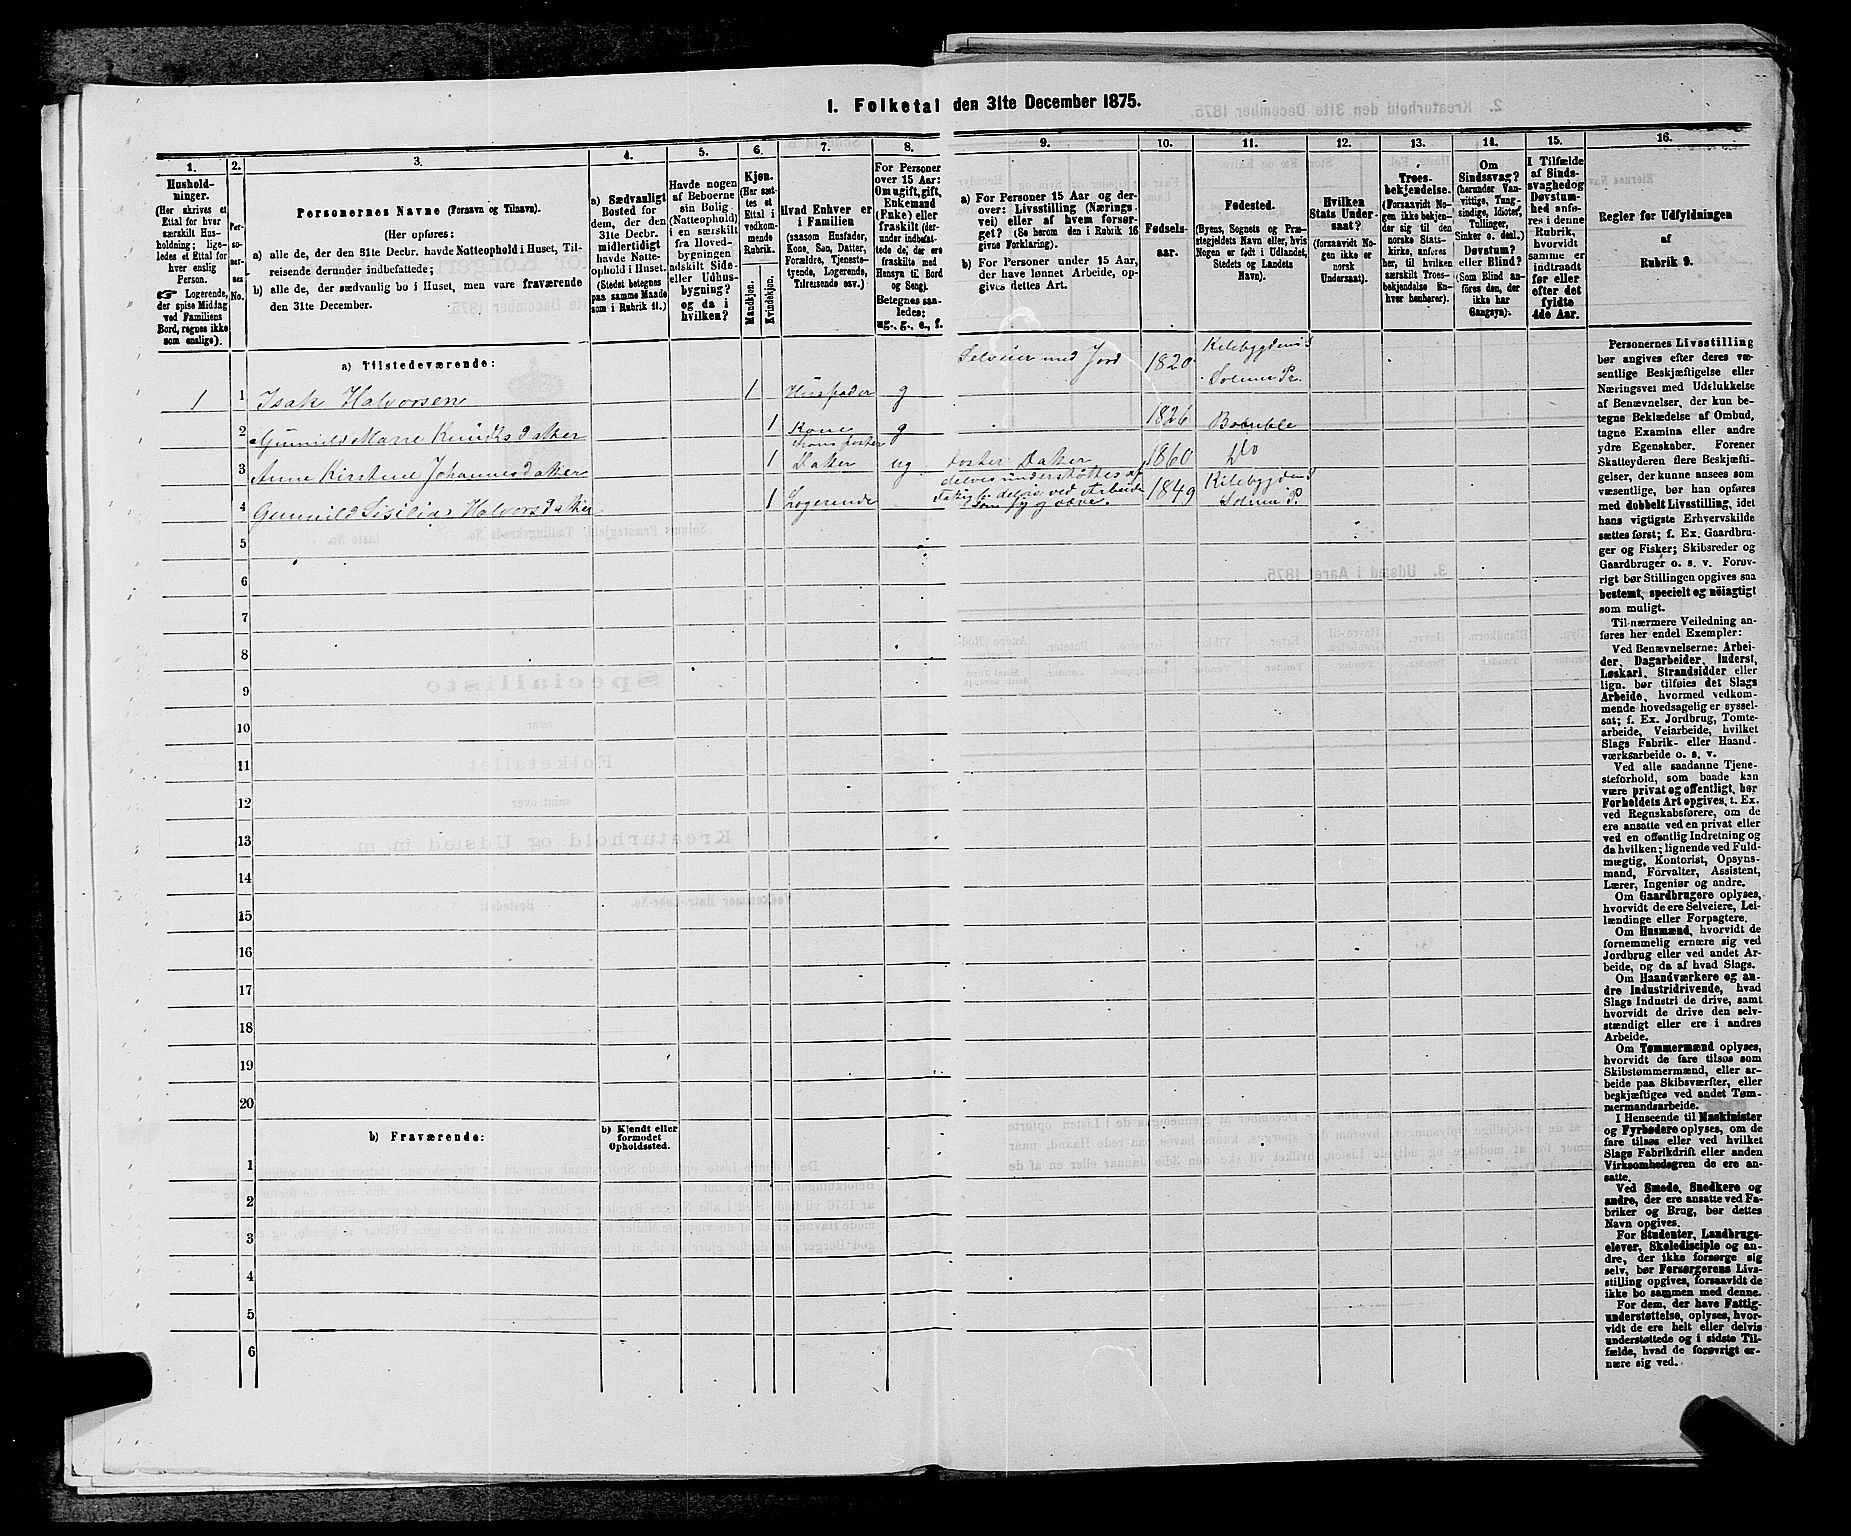 I. Folketal den 31te December 1875.
1.
Hushold-
ninger.
(Her skrives et
Ettal for hver
særskilt Hus-
holdning; lige-
ledes et Ettal for
hver enslig
Person.
☞ Logerende,
der spise Middag
ved Familiens
Bord, regnes ikke
som enslige).
2.
Per-
so-
ner-
nes
No.
3.
Personernes Navne (Fornavn og Tilnavn).
(Her opføres:
a) alle de, der den 31te Decbr. havde Natteophold i Huset, Til-
reisende derunder indbefattede;
b) alle de, der sædvanlig bo i Huset, men vare fraværende
den 31te December.
4.
a) Sædvanligt
Bosted for
dem, der den
31te Decbr.
midlertidigt
havde Natte-
ophold i Huset.
(Stedet betegnes
paa samme Maade
som i Rubrik 11.)
5.
Havde nogen
af Beboerne
sin Bolig
(Natteophold)
i en særskilt
fra Hoved-
bygningen
adskilt Side-
eller Udhus-
bygning?
og da i
hvilken?
6.
Kjøn.
(Her sæt-
tes et
Ettal i
vedkom-
mende
Rubrik.
Mandkjøn.
Kvindekjøn.
7.
Hvad Enhver er
i Familien
(saasom Husfader,
Kone, Søn, Datter,
Forældre, Tjeneste-
tyende, Logerende,
Tilreisende osv.)
8.
For Personer
over 15 Aar:
Om ugift, gift,
Enkemand
(Enke) eller
fraskilt (der-
under indbefat-
tede de, der ere
fraskilte med
Hensyn til Bord
og Seng).
Betegnes saa-
ledes:
ug., g., e., f.
9.
a) For Personer 15 Aar og der-
over: Livsstilling (Nærings-
vei) eller af hvem forsør-
get? (Se herom den i Rubrik 16
givne Forklaring).
b) For Personer under 15 Aar,
der have lønnet Arbeide, op-
gives dettes Art.
10.
Fødsels-
aar.
11.
Fødested.
(Byens, Sognets og Præ-
stegjeldets Navn eller, hvis
Nogen er født i Udlandet,
Stedets og Landets
Navn).
12.
Hvilken
Stats Under-
saat?
(forsaavidt No-
gen ikke er
norsk
Undersaat).
13.
Troes-
bekjendelse.
(Forsaavidt No-
gen ikke bekjen-
der sig til den
norske Stats-
kirke, anføres
her, til hvilken
særskilt Troes-
bekjendelse En-
hver henhører).
14.
Om
Sindssvag?
(herunder Van-
vittige, Tung-
sindige, Idioter,
Tullinger,
Sinker o. desl.)
eller Blind?
Døvstum?
(Som Blind an-
føres den, der
ikke har
Gangsyn).
15.
I Tilfælde
af Sinds-
svaghed og
Døvstum-
hed anfø-
res i denne
Rubrik,
hvorvidt
samme er
indtraadt
før eller
efter det
fyldte
4de Aar.
16.
Regler for Udfyldningen
af
Rubrik 9.
a) Tilstedeværende:
1 1 Isak Halvorsen 1 Husfader g Selveier med Jord 1820 Kilebygdens S Solum Pr.
2 Gunnild Marie Knudsdatter 1 Kone g 1826 Bamble
3 Anne Kirstine Johannesdatter 1 Datter ug foster Datter 1860 Do
4 Gunnild Sisilia Halvorsdatter 1 Logerende 1849 Kilebygdens S Solum P.
delvis understøttes af
5
6
7
8
9
10
11
12
13
14
15
16
17
18
19
20
b) Fraværende:
b) Kjendt eller
formodet
Opholdssted.
1
2
3
4
5
6
Personernes Livsstilling
bør angives efter deres væ-
sentlige Beskjæftigelse eller
Næringsvei med Udelukkelse
af Benævnelser, der kun be-
tegne Beklædelse af Ombud,
tagne Examina eller andre
ydre Egenskaber. Forener
Skatteyderen flere Beskjæfti-
gelser, der kunne ansees som
væsentlige, bør han opføres
med dobbelt Livsstilling, idet
hans vigtigste Erhvervskilde
sættes først; f. Ex. Gaardbru-
ger og Fisker; Skibsreder og
Gaardbruger o. s. v. Forøv-
rigt bør Stillingen opgives saa
bestemt, specielt og nöiagtigt
som muligt.
Til nærmere Veiledning an-
føres her endel Exempler:
Ved Benævnelserne: Arbei-
der, Dagarbeider, Inderst,
Løskarl, Strandsidder eller
lign. bør tilføies det Slags
Arbeide, hvormed vedkom-
mende hovedsagelig er syssel-
sat; f. Ex. Jordbrug, Tomte-
arbeide, Veiarbeide, hvilket
Slags Fabrik- eller Haand-
værksarbeide o. s. v.
Ved alle saadanne Tjene-
steforhold, som baade kan
være privat og offentligt, bør
Forholdets Art opgives, t. Ex.
ved Regnskabsførere, om de
ere ansatte ved en privat eller
ved en offentlig Indretning og
da hvilken; lignende ved Fuld-
mægtig, Kontorist, Opsyns-
mand, Forvalter, Assistent,
Lærer, Ingeniør og andre.
Om Gaardbrugere oplyses,
hvorvidt de ere Selveiere, Lei-
lændinge eller Forpagtere.
Om Husmænd, hvorvidt de
fornemmelig ernære sig ved
Jordbrug eller ved andet Ar-
beide, og da af hvad Slags.
Om Haandværkere og an-
dre Industridrivende, hvad
Slags Industri de drive, samt
hvorvidt de drive den selv-
stændigt eller ere i andres
Arbeide.
Om Tømmermænd oplyses,
hvorvidt de fare tilsøs som
Skibstømmermænd, eller ar-
beide paa Skibsværfter, eller
beskjæftiges ved andet Tøm-
mermandsarbeide.
I Henseende til Maskinister
og Fyrbødere oplyses, om de
fare tilsøs eller ved hvilket
Slags Fabrikdrift eller anden
Virksomhedsgren de ere an-
satte.
Ved Smede, Snedkere og
andre, der ere ansatte ved Fa-
briker og Brug, bør dettes
Navn opgives.
For Studenter, Landbrugs-
elever, Skoledisciple og an-
dre, der ikke forsørge sig
selv, bør Forsørgerens Livs-
stilling opgives, forsaavidt de
ikke bo sammen med denne.
For dem, der have Fattig-
understøttelse, oplyses, hvor-
vidt de ere helt eller delvis
understøttede og i sidste Til-
fælde, hvad de forøvrigt er-
nære sig ved.